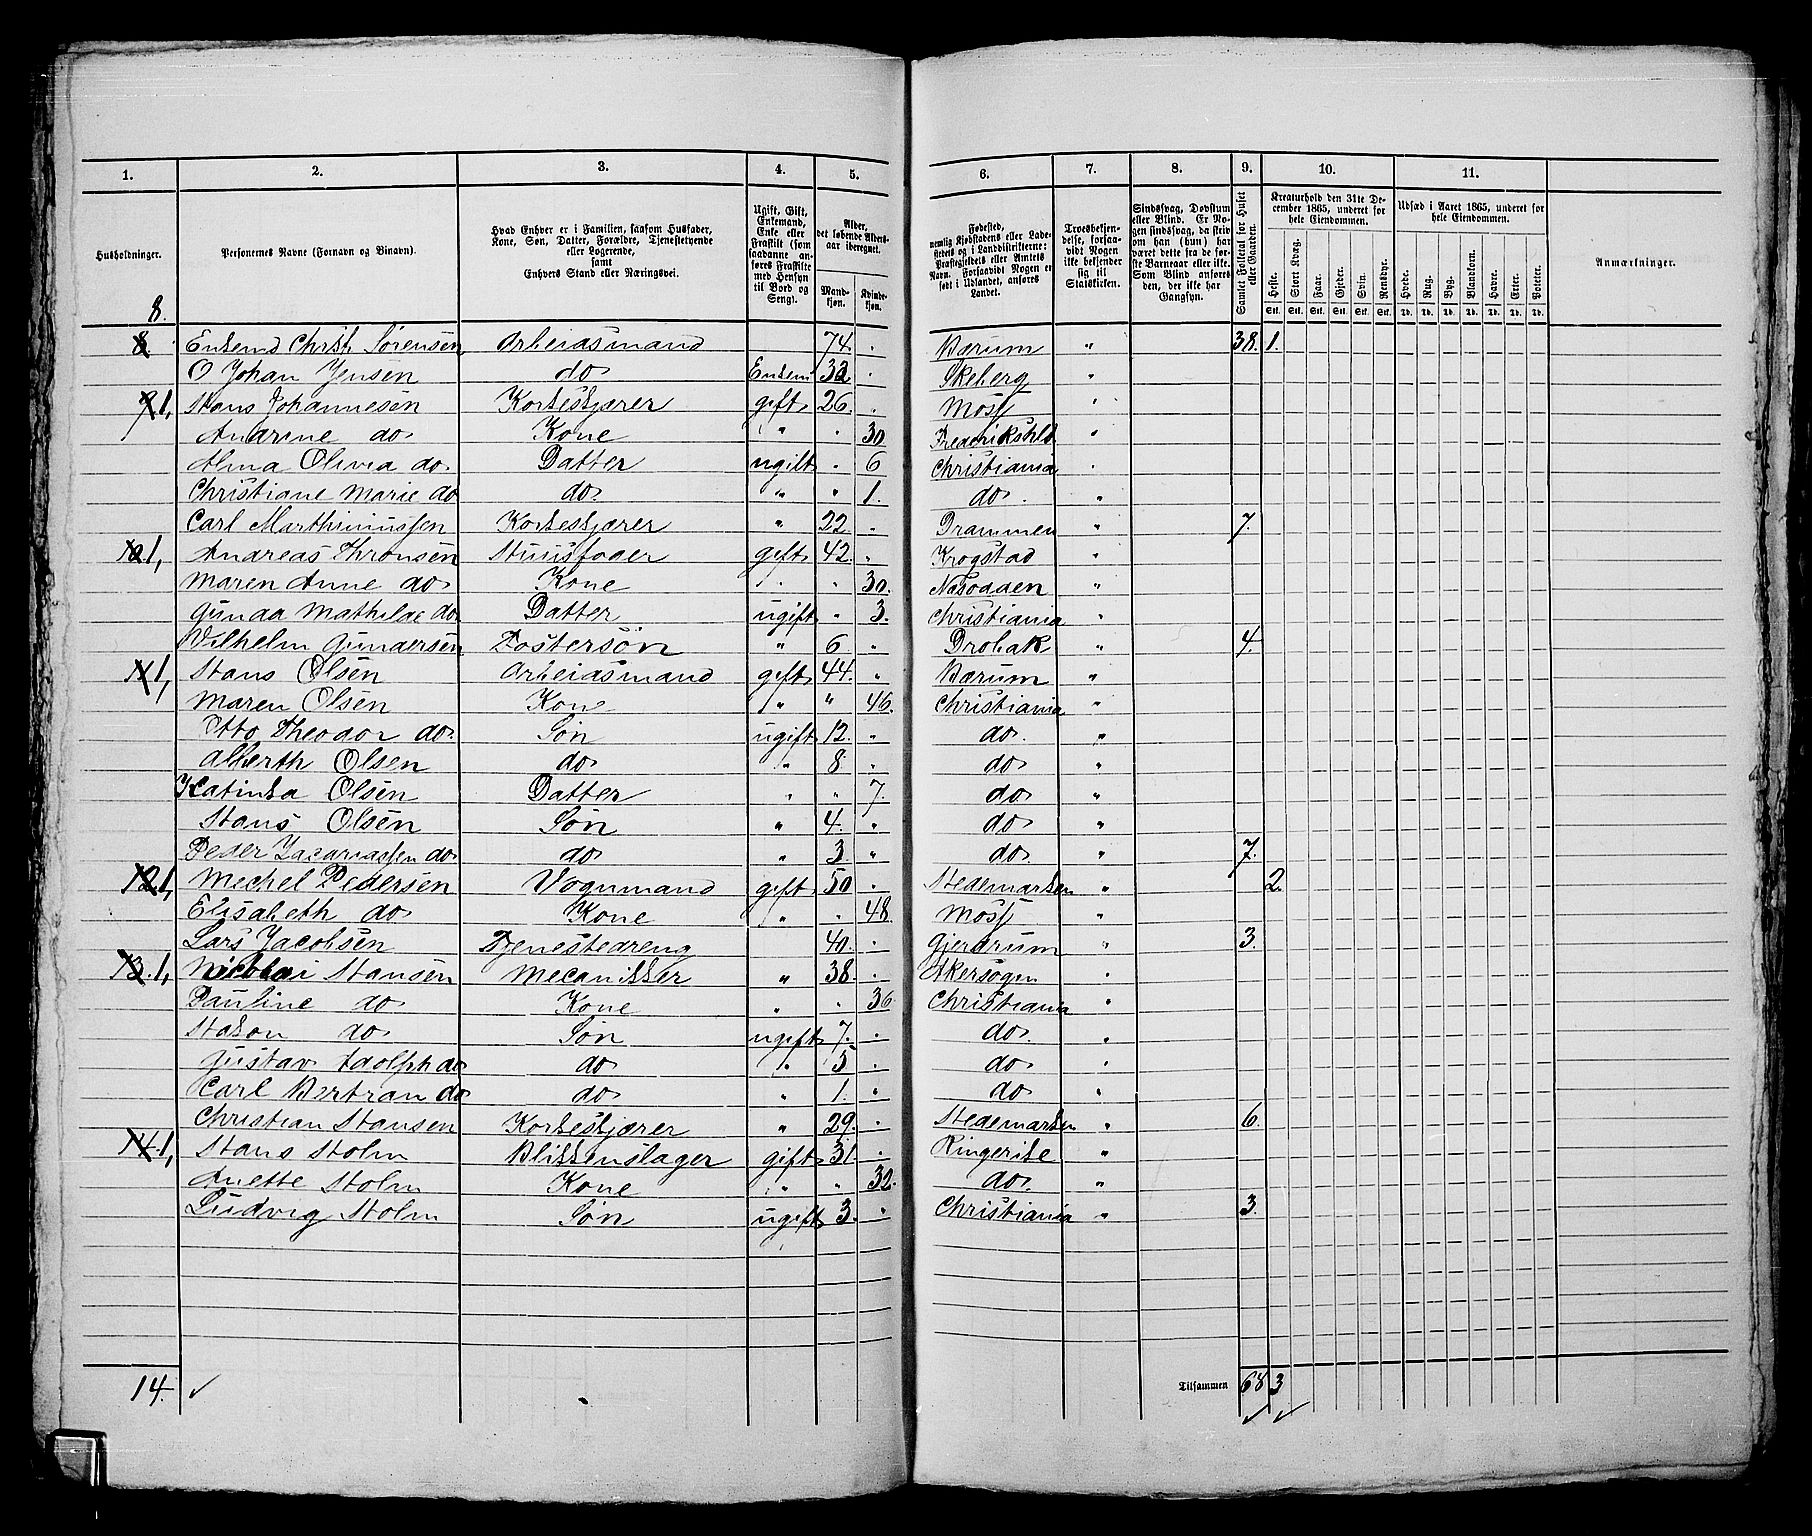 1. 2. 3. 4. 5. 6. 7. 8. 9. 10. 11.
Husholdninger.
Personernes Navne (Fornavn og Binavn).
Hvad Enhver er i Familien, saasom Husfader, Kone, Søn, Datter, Forældre, Tjenestetyende eller Logerende, samt Enhvers Stand eller Næringsvei.
Ugift, Gift, Enkemand, Enke eller Fraskilt (som saadanne anføres Fraskilte med Hensyn til Bord og Seng).
Alder, det løbende Aldersaar iberegnet.
Mandkjøn. Kvindekjøn.
Fødested, nemlig Kjøbstadens eller Ladestedets og i Landdistrikterne: Præstegjeldets eller Amtets Navn. Forsaavidt Nogen er født i Udlandet, anføres Landet.
Troesbekjendelse, forsaavidt Nogen ikke bekjender sig til Statskirken.
Sindssvag, Døvstum eller Blind. Er Nogen sindssvag, da skriv om han (hun) har været dette fra de første Barneaar eller ikke. Som Blind anføres den, der ikke har Gangsyn.
Samlet Folketal for Huset eller Gaarden.
Kreaturhold den 31te December 1865, underet for hele Eiendommen.
Heste. Stort Kvæg. Faar. Gjeder. Svin. Rensdyr.
Stk. Stk. Stk. Stk. Stk. Stk.
Udsæd i Aaret 1865, underet for hele Eiendommen.
Hvede. Rug. Byg. Blandkorn. Havre. Erter. Poteter.
Td. Td. Td. Td. Td. Td. Td.
Anmærkninger.
8.
8 Enkemd Christ. Sørensen Arbeidsmand 74 " Bærum " 38. 1.
O Johan Jensen do Enkem 32 " Skeberg "
9 1, Hans Johannesen Korkeskjærer gift 26. " Moss "
Andrine do Kone " " 30 Frederikshld "
Alma Olivia do Datter ugift " 6 Christiania "
Christiane Marie do do " " 1. do "
Carl Marthiniussen Korkeskjærer " 22 " Drammen " 7.
10 1, Andreas Thronsen Huusfader gift 42 " Krogstad "
Maren Anne do Kone " " 30. Næsodden "
Gunda Mathilde do Datter ugift " 3. Christiania "
Vilhelm Gundersen Fostersøn " 6 " Drobak " 4.
11 1, Hans Olsen Arbeidsmand gift 44. " Bærum "
Maren Olsen Kone " " 46. Christiania "
Otto Theodor do. Søn ugift 12. " do. "
Alberth Olsen do " 8 " do "
Katinka Olsen Datter " " 7. do "
Hans Olsen Søn " 4. " do "
Peder Zacariassen do do " 3. " do " 7.
12 1, Mechel Pedersen Vognmand gift 50 " Hedemarken " 2
Elisabeth do Kone " " 48. Moss "
Lars Jacobsen Tjenestedreng 40. " Gjerdrum " 3.
13. 1, Nicolai Hansen Mecanikker " 38. " Akersogen "
Pauline do Kone " " 36 Christiania "
Hakon do Søn ugift 7. " do. "
Gustav Adolph do do " 5 " do "
Carl Bertran do do " 1. " do "
Christian Hansen Korkeskjærer " 29. " Hedemarken " 6.
14. 1, Hans Holm Blikkenslager gift 31. " Ringerike "
Anette Holm Kone " " 32. do. "
Ludvig Holm Søn ugift 3. " Christiania " 3.
14. ✓ Tilsammen 68 3
✓ ✓